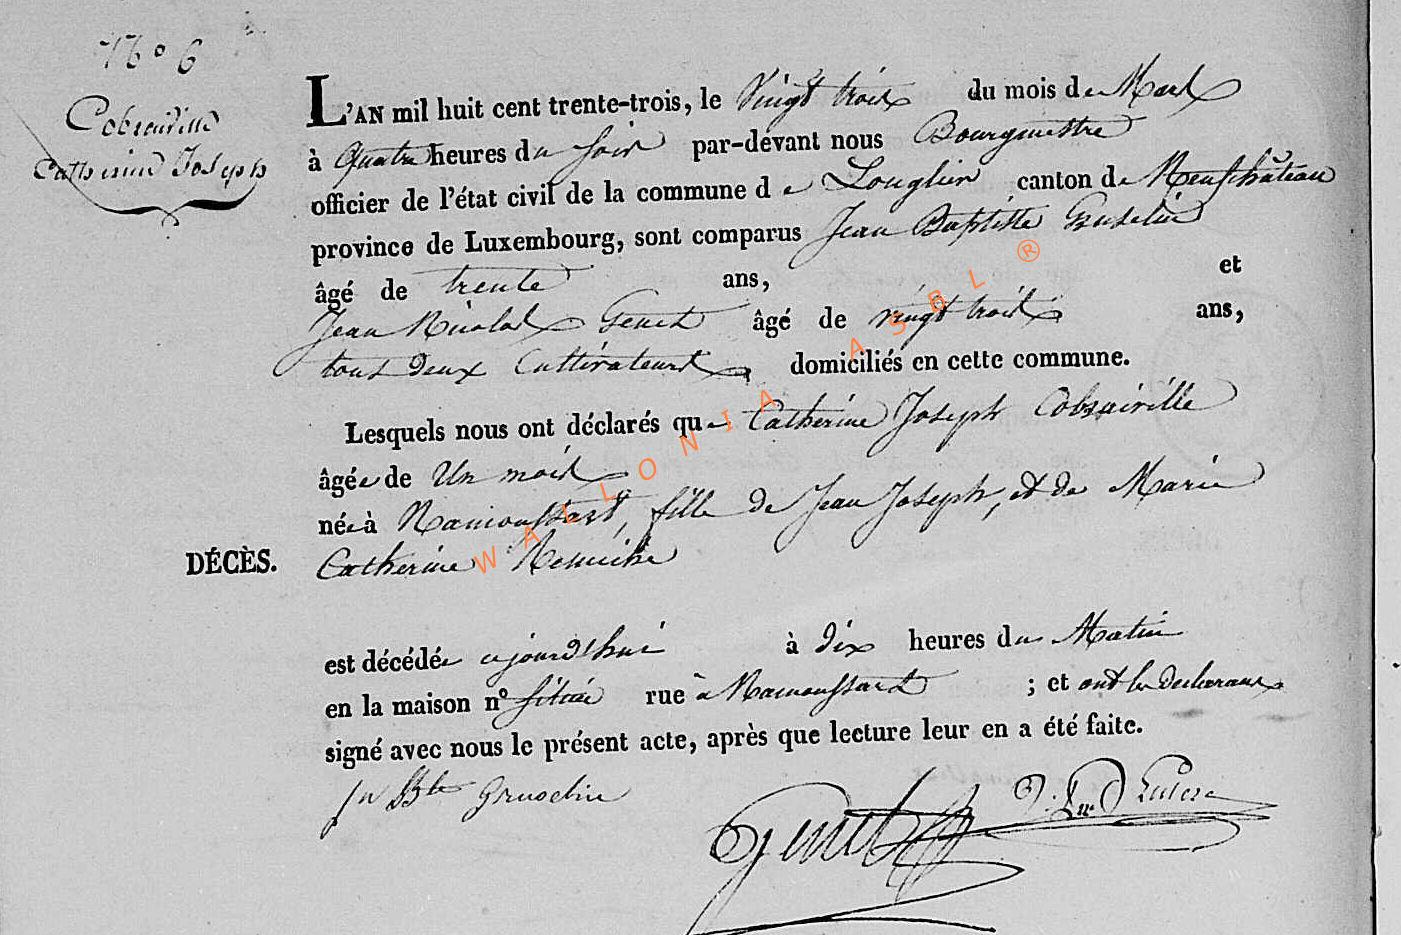 N° 6
Cobraiville
Catherine Joseph
L'AN mil huit cent trente-trois, le Vingt trois du mois de Mars
à quatre heures du soir par-devant nous Bourgmestre
officier de l'état civil de la commune de Longlier canton de Neufchâteau
province de Luxembourg, sont comparus Jean Baptiste Gruslin
âgé de trente ans, et
Jean Nicolas Genet âgé de vingt trois ans,
tous deux Cultivateurs domiciliés en cette commune.
Lesquels nous ont déclarés que Catherine Joseph Cobraiville
âgée de Un mois
née à Namoussart, fille de Jean Joseph, et de Marie
DÉCÈS. Catherine
est décédée ajourd'hui à dix heures du Matin
en la maison n° située rue à Namoussart ; et ont les declarans
signé avec nous le présent acte, après que lecture leur en a été faite.
Jn Bte Gruselin
Genet
WALLONIA ASBL ®